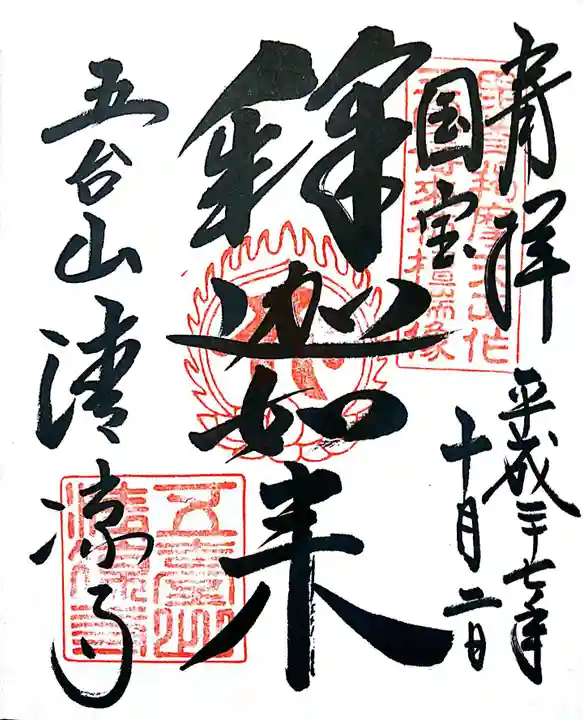 奉拝
平成二十七年
十月二日
国宝
釈迦如来
五台山清凉寺
五臺山
清凉寺